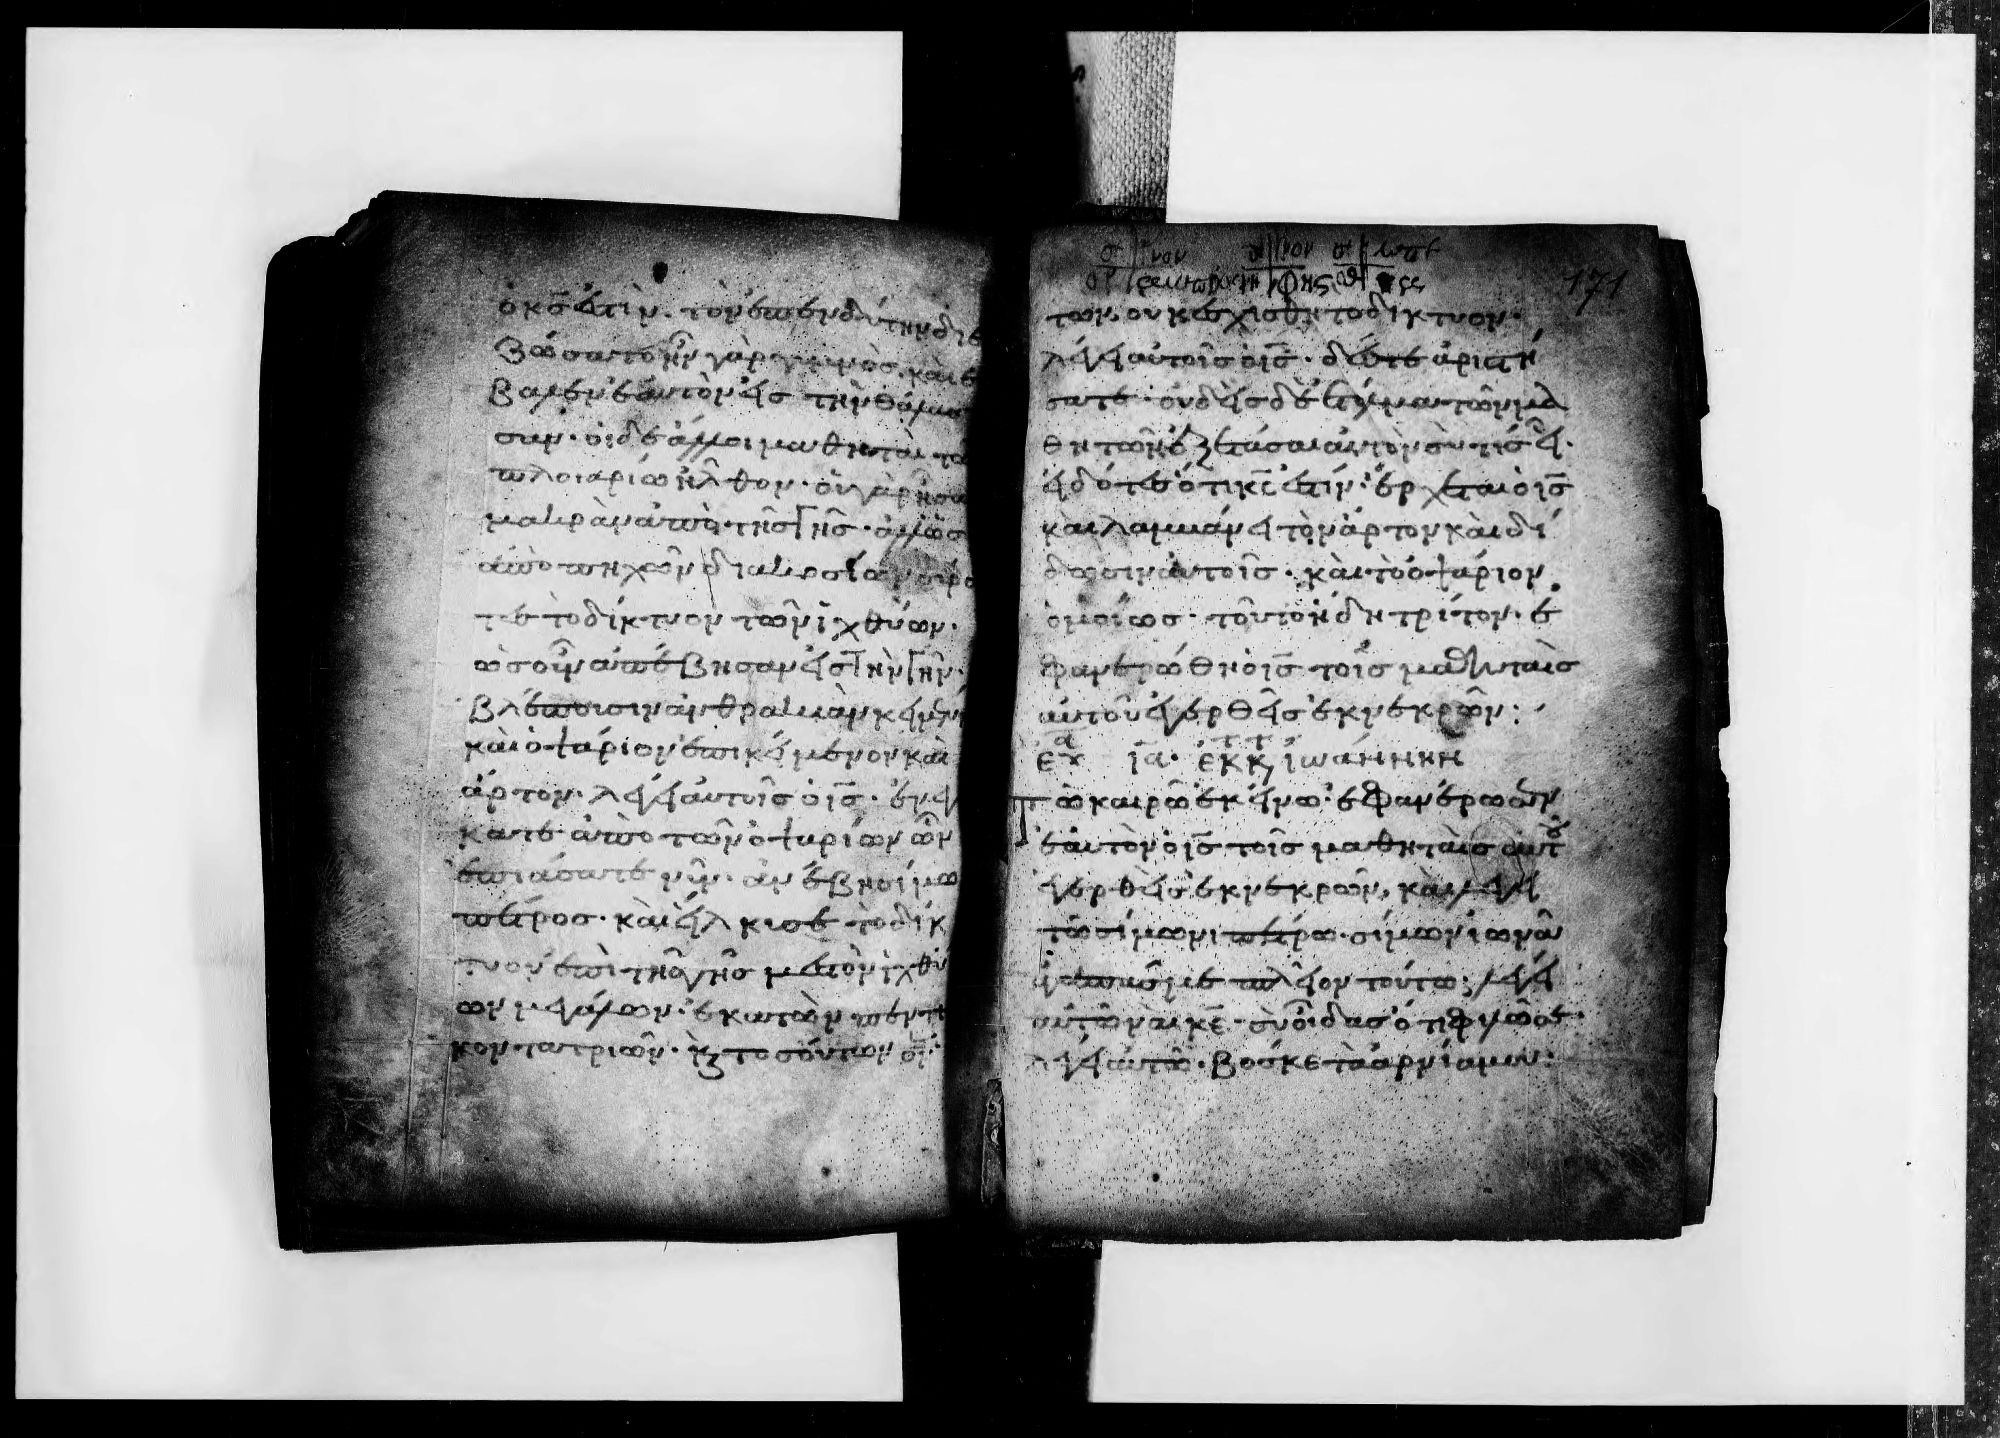 ὁ κ̅ς̅ ἐστὶν. τὸν ἐπενδύτην διε
ζώσατο ἦν γὰρ γυμνὸς. καὶ ἔ
βαλεν ἑαυτὸν εἰς τὴν θάλασ
σαν. οἱ δὲ ἄλλοι μαθηταὶ τῶ
πλοιαρίω ἦλθον. οὐ γὰρ ἦσαν
μακρὰν ἀπὸ τῆς γῆς. ἀλλ ὡς
ἀπὸ πηχῶν διακοσίων σύρο
τες τὸ δίκτυον τῶν ἰχθύων.
ὡς οὖν ἀπέβησαν εἰς τὴν γῆν.
βλέπουσιν ἀνθρακιὰν κειμένη
καὶ ὀψάριον ἐπικείμενον καὶ
ἄρτον. λέγει αὐτοῖς ὁ ι̅ς̅. ἐνέγ
κατε ἀπὸ τῶν ὀψαρίων ὧν
ἐπιάσατε νῦν. ἀνέβη σίμω
πέτρος. καὶ εἵλκισε τὸ δίκ
τυον ἐπὶ τῆς γῆς μεστὸν ἰχθύ
ων μεγάλων. ἑκατὸν πεντή
κοντα τριῶν. κ τοσούτων ὄν
171
των. οὐκ ἐσχίσθη τὸ δίκτυον.
λέγει αὐτοῖς ὁ ι̅ς̅. δεῦτε ἀριστή
σατε. οὐδεὶς δὲ ἐτόλμα τῶν μα
θητῶν ἐξετάσαι αὐτὸν σὺ τίς εἶ.
εἰδότες ὅτι κ̅ς̅ ἐστίν. ἔρχεται ὁ ι̅ς̅
καὶ λαμβάνει τὸν ἄρτον καὶ δί
δωσιν αὐτοῖς. καὶ τὸ ὀψάριον
ὁμοίως. τοῦτο ἤδη τρίτον. ἐ
φανερώθη ὁ ι̅ς̅ τοῖς μαθηταῖς
αὐτοῦ ἐγερθεὶς ἐκ νεκρῶν:
ευ ια. ἐκ κ ἰωάννην
Τῶ καιρῶ ἐκείνω. ἐφανέρωσεν
ἑαυτὸν ὁ ι̅ς̅ τοῖς μαθηταῖς αὐτ
ἐγερθεὶς ἐκ νεκρῶν. καὶ λέγει
τῶ σίμωνι πέτρω. σίμων ἰωνᾶ
ἀγαπᾶς με πλεῖον τούτω; λέγει
αὐτῶ ναὶ κ̅ε̅. σὺ οἶδας ὅτι φιλῶ σε.
λέγει αὐτῶ. βόσκε τὰ ἀρνία μου: